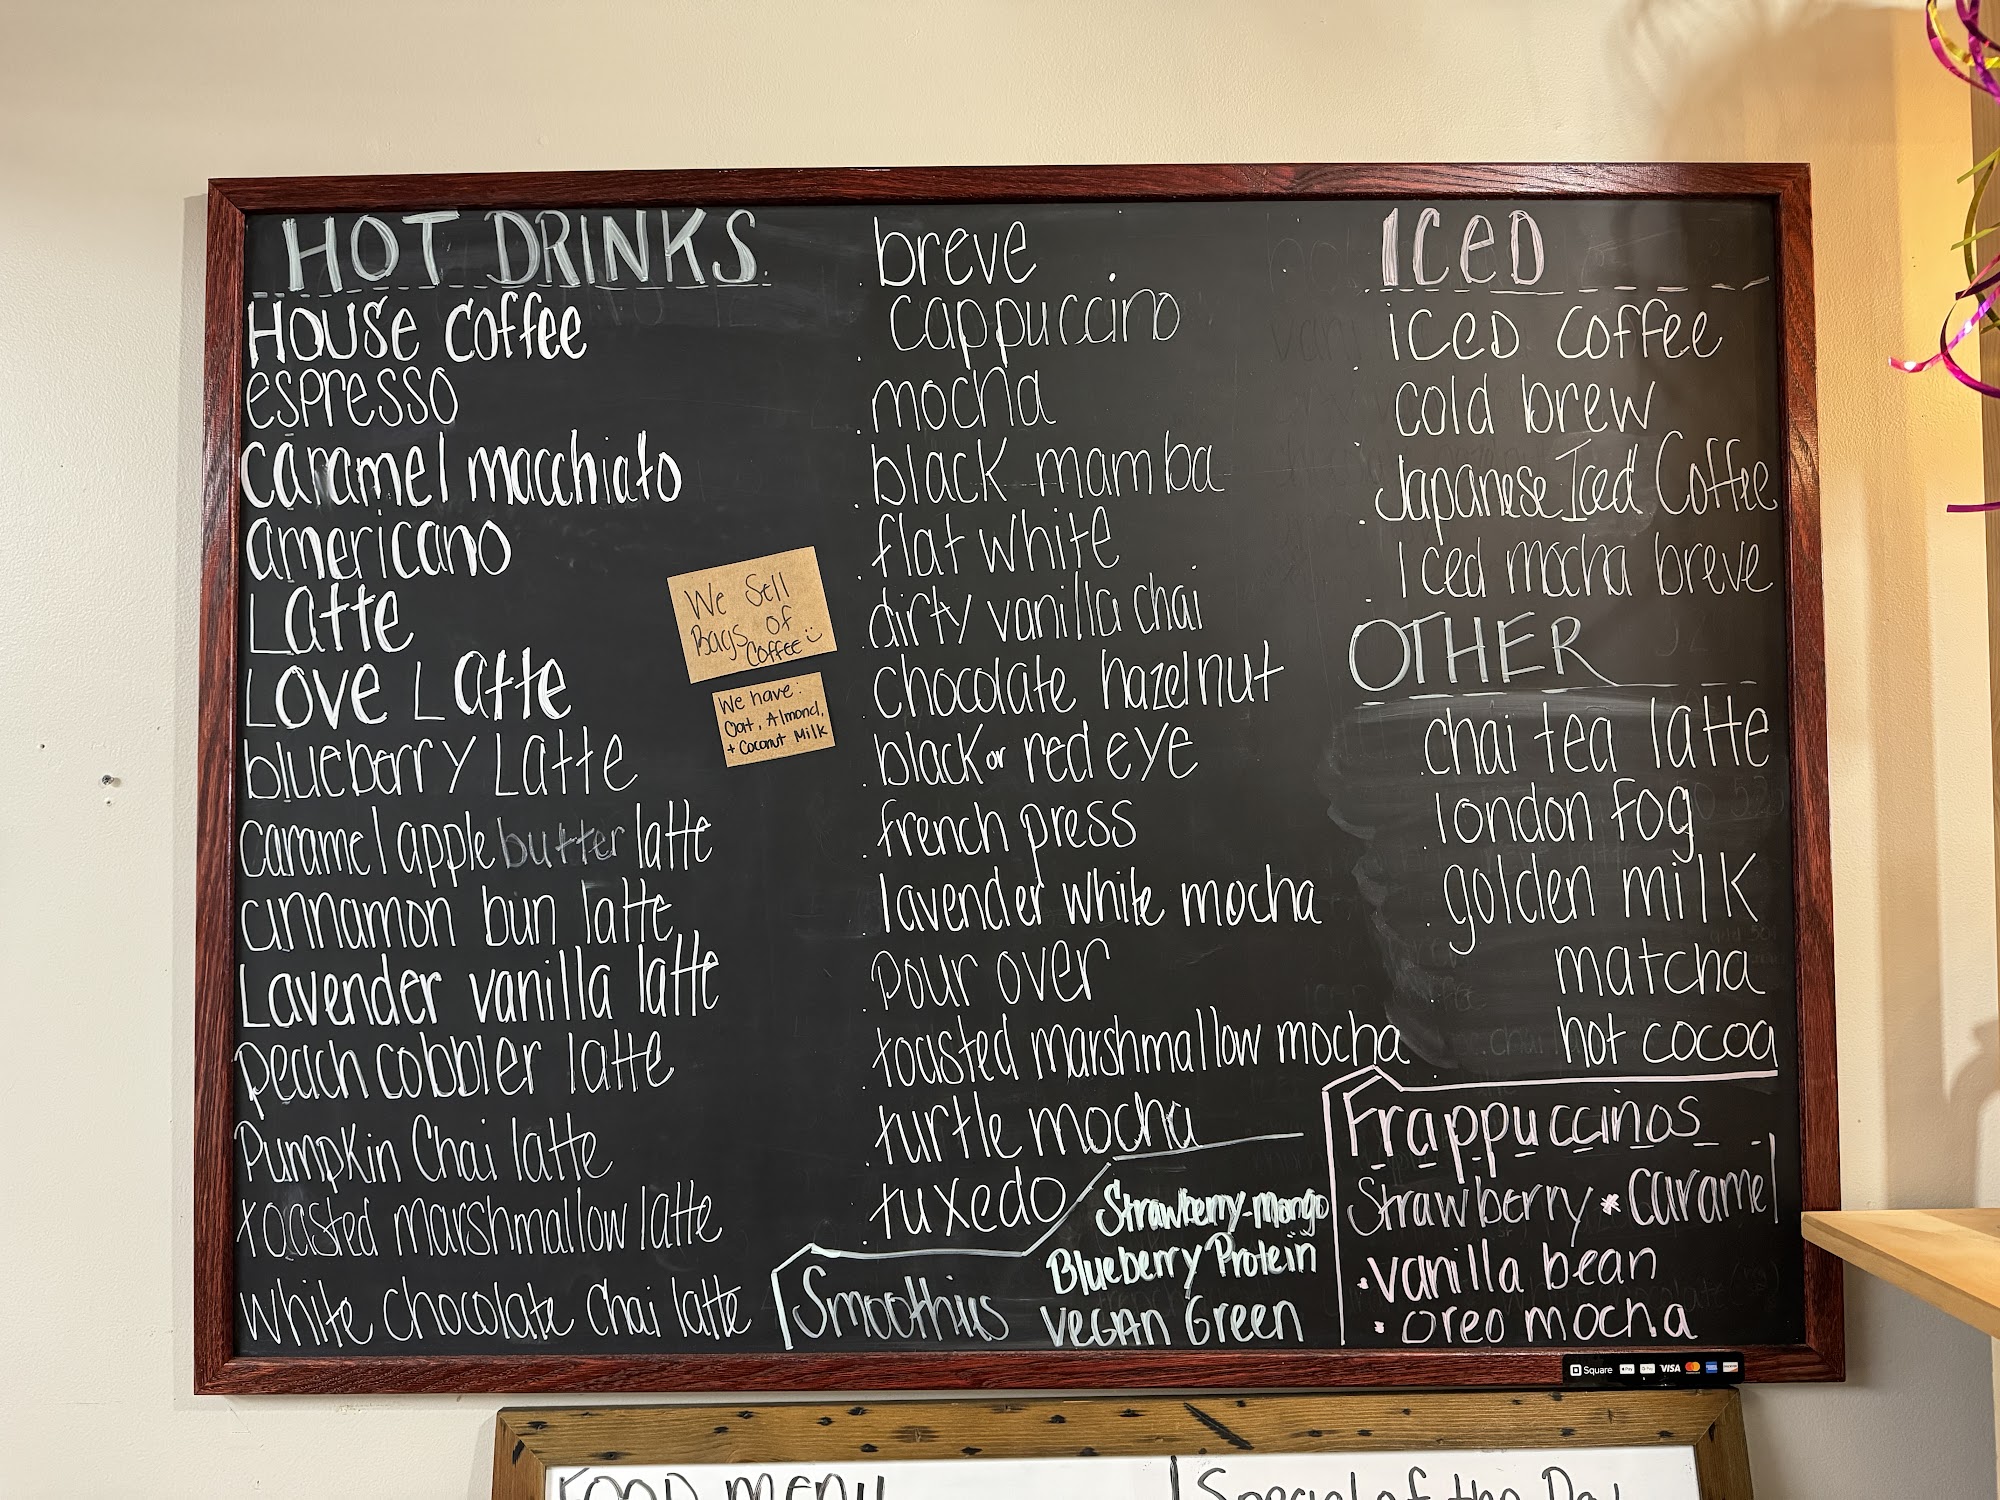 HOT DRINKS
House coffee
espresso
caramel macchiato
americano
Latte
Love Latte
blueberry Latte
caramel apple butter latte
cinnamon bun latte
Lavender vanilla latte
peach cobbler latte
Pumpkin Chai latte
toasted marshmallow latte
white chocolate chai latte
We Sell
Bags of
Coffee
We have:
Oat, Almond,
+ Coconut Milk
breve
cappuccino
mocha
black mamba
flat white
dirty vanilla chai
chocolate hazelnut
black or red eye
french press
lavender white mocha
pour over
toasted marshmallow mocha
turtle mocha
tuxedo
Smoothies
Strawberry-Mango
Blueberry Protein
Vegan Green
ICED
iced coffee
cold brew
Japanese Iced Coffee
Iced mocha breve
OTHER
chai tea latte
london fog
golden milk
matcha
hot cocoa
Frappuccinos
Strawberry * caramel
• vanilla bean
• oreo mocha
Square Pay G Pay VISA
FOOD MENU
Special of the Day